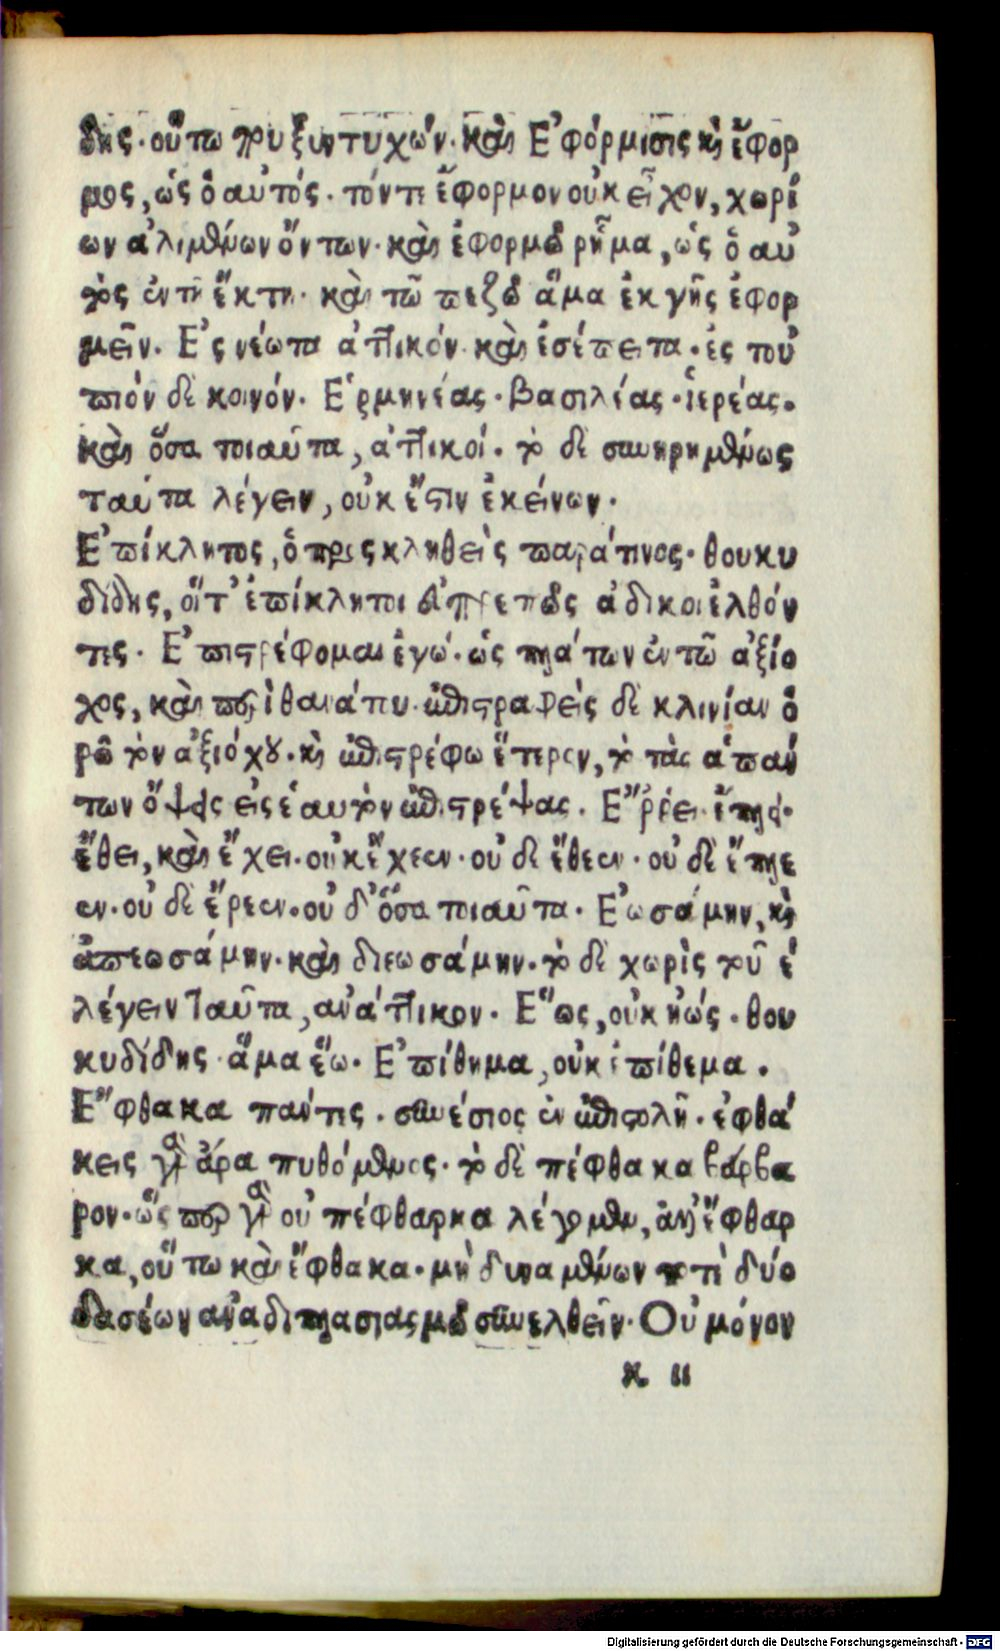 δης. οὕτω τοῦ ξυντυχών. καὶ Ἐφόρμισις καὶ ἔφορ
μος, ὡς ὁ αὐτός. τόν τε ἔφορμον οὐκ εἶχον, χωρί
ων ἀλιμένων ὄντων. καὶ ἐφορμῶ ῥῆμα, ὡς ὁ αὐ
τὸς ἐν τῇ ἕκτῃ. καὶ τῶ πεζῶ ἅμα ἐκ γῆς ἐφορ
μεῖν. Ἐς νέωτα ἀττικόν. καὶ ἐσέπειτα. ἐς τοὐ
πιόν δὲ κοινόν. Ἑρμηνέας. βασιλέας. ἱερέας.
καὶ ὅσα τοιαῦτα, ἀττικοί. τὸ δὲ συνηρημένως
ταῦτα λέγειν, οὐκ ἔστιν ἐκείνων.
Ἐπίκλητος, ὁ προσκληθεὶς παρά τινος. θουκυ
δίδης, οἵ τ' ἐπίκλητοι εὐπρεπῶς ἄδικοι ἐλθόν
τες. Ἐπιστρέφομαι ἐγώ. ὡς πλάτων ἐν τῶ ἀξίο
χος, καὶ περὶ θανάτου. ἐπιστραφεὶς δὲ κλινίαν ὁ
ρῶ τὸν ἀξιόχου. καὶ ἐπιστρέφω ἕτερον, τὸ τὰς ἁπάν
των ὄψεις εἰς ἑαυτὸν ἐπιστρέψας. Ἔῤῥει. ἔπλει.
ἔθει, καὶ ἔχει. οὐκ ἔχεεν. οὐ δὲ ἔθεεν. οὐ δὲ ἔπλε
εν. οὐ δὲ ἔρεεν. οὐ δ' ὅσα τοιαῦτα. Ἐωσάμην, καὶ
ἀπεωσάμην. καὶ διεωσάμην. τὸ δὲ χωρὶς τοῦ ἐ
λέγειν ταῦτα, ἀνάττικον. Ἕως, οὐκ ἠώς. θου
κυδίδης. ἅμα ἕω. Ἐπίθημα, οὐκ ἐπίθεμα.
Ἔφθακα πάντες. συνέσιος ἐν ἐπιστολῆ. ἐφθά
κεις γὰρ ἄρα πυθόμενος. τὸ δὲ πέφθακα βάρβα
ρον. ὥσπερ γὰρ οὐ πέφθαρκα λέγομεν, ἀλλ' ἔφθαρ
κα, οὕτω καὶ ἔφθακα. μὴ δυναμένων κτὶ δύο
δασέων ἀναδιπλασιασμῶ συνελθεῖν. Οὐ μόνον
κ ιι
Digitalisierung gefördert durch die Deutsche Forschungsgemeinschaft - DFG